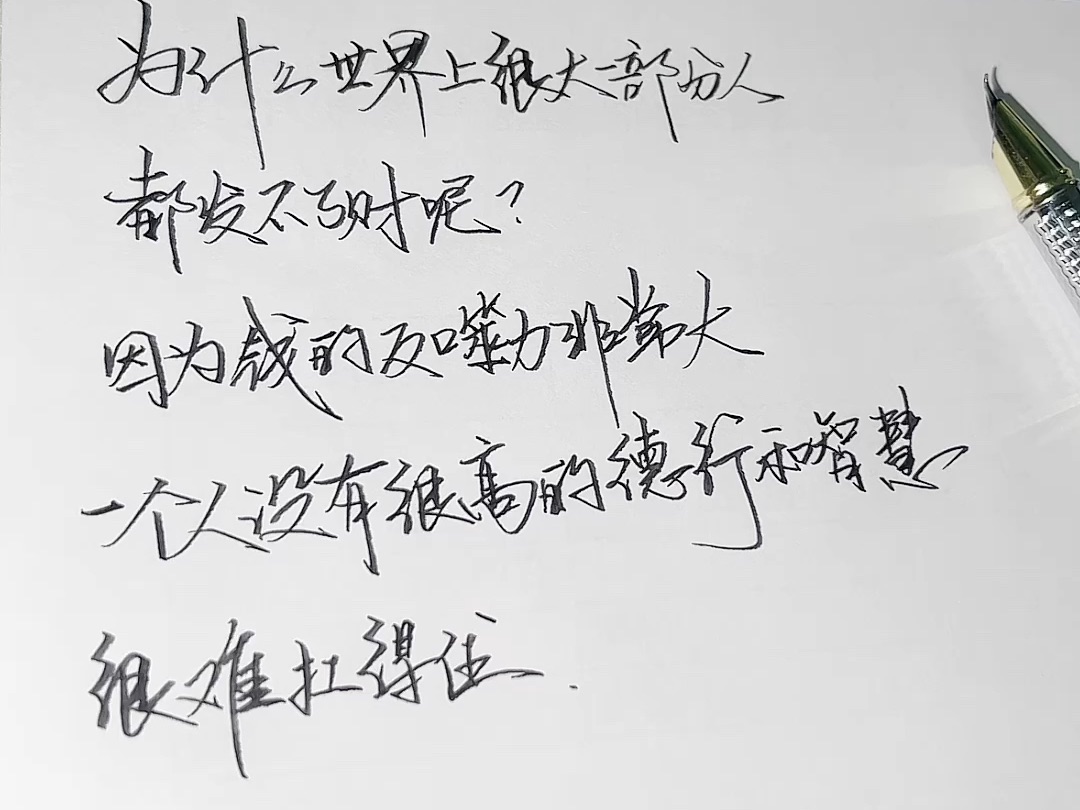 为什么世界上很大部分人
都发不了财呢?
因为钱的反噬力非常大
一个人没有很高的德行和智慧
很难扛得住.